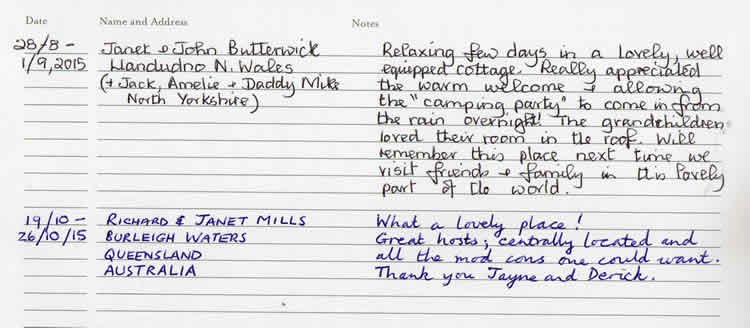 Date Name and Address Notes
28/8 - Janet & John Butterwick Relaxing few days in a lovely, well
1/9, 2015 Llandudno N. Wales equipped cottage. Really appreciated
(+ Jack, Amelie + Daddy Mike the warm welcome & allowing
North Yorkshire) the "camping party" to come in from
the rain overnight! The grandchildren
loved their room in the roof. Will
remember this place next time we
visit friends & family in this lovely
part of the world.
19/10 - RICHARD & JANET MILLS What a lovely place!
26/10/15 BURLEIGH WATERS Great hosts; centrally located and
QUEENSLAND all the mod cons one could want.
AUSTRALIA Thank you Jayne and Derick.